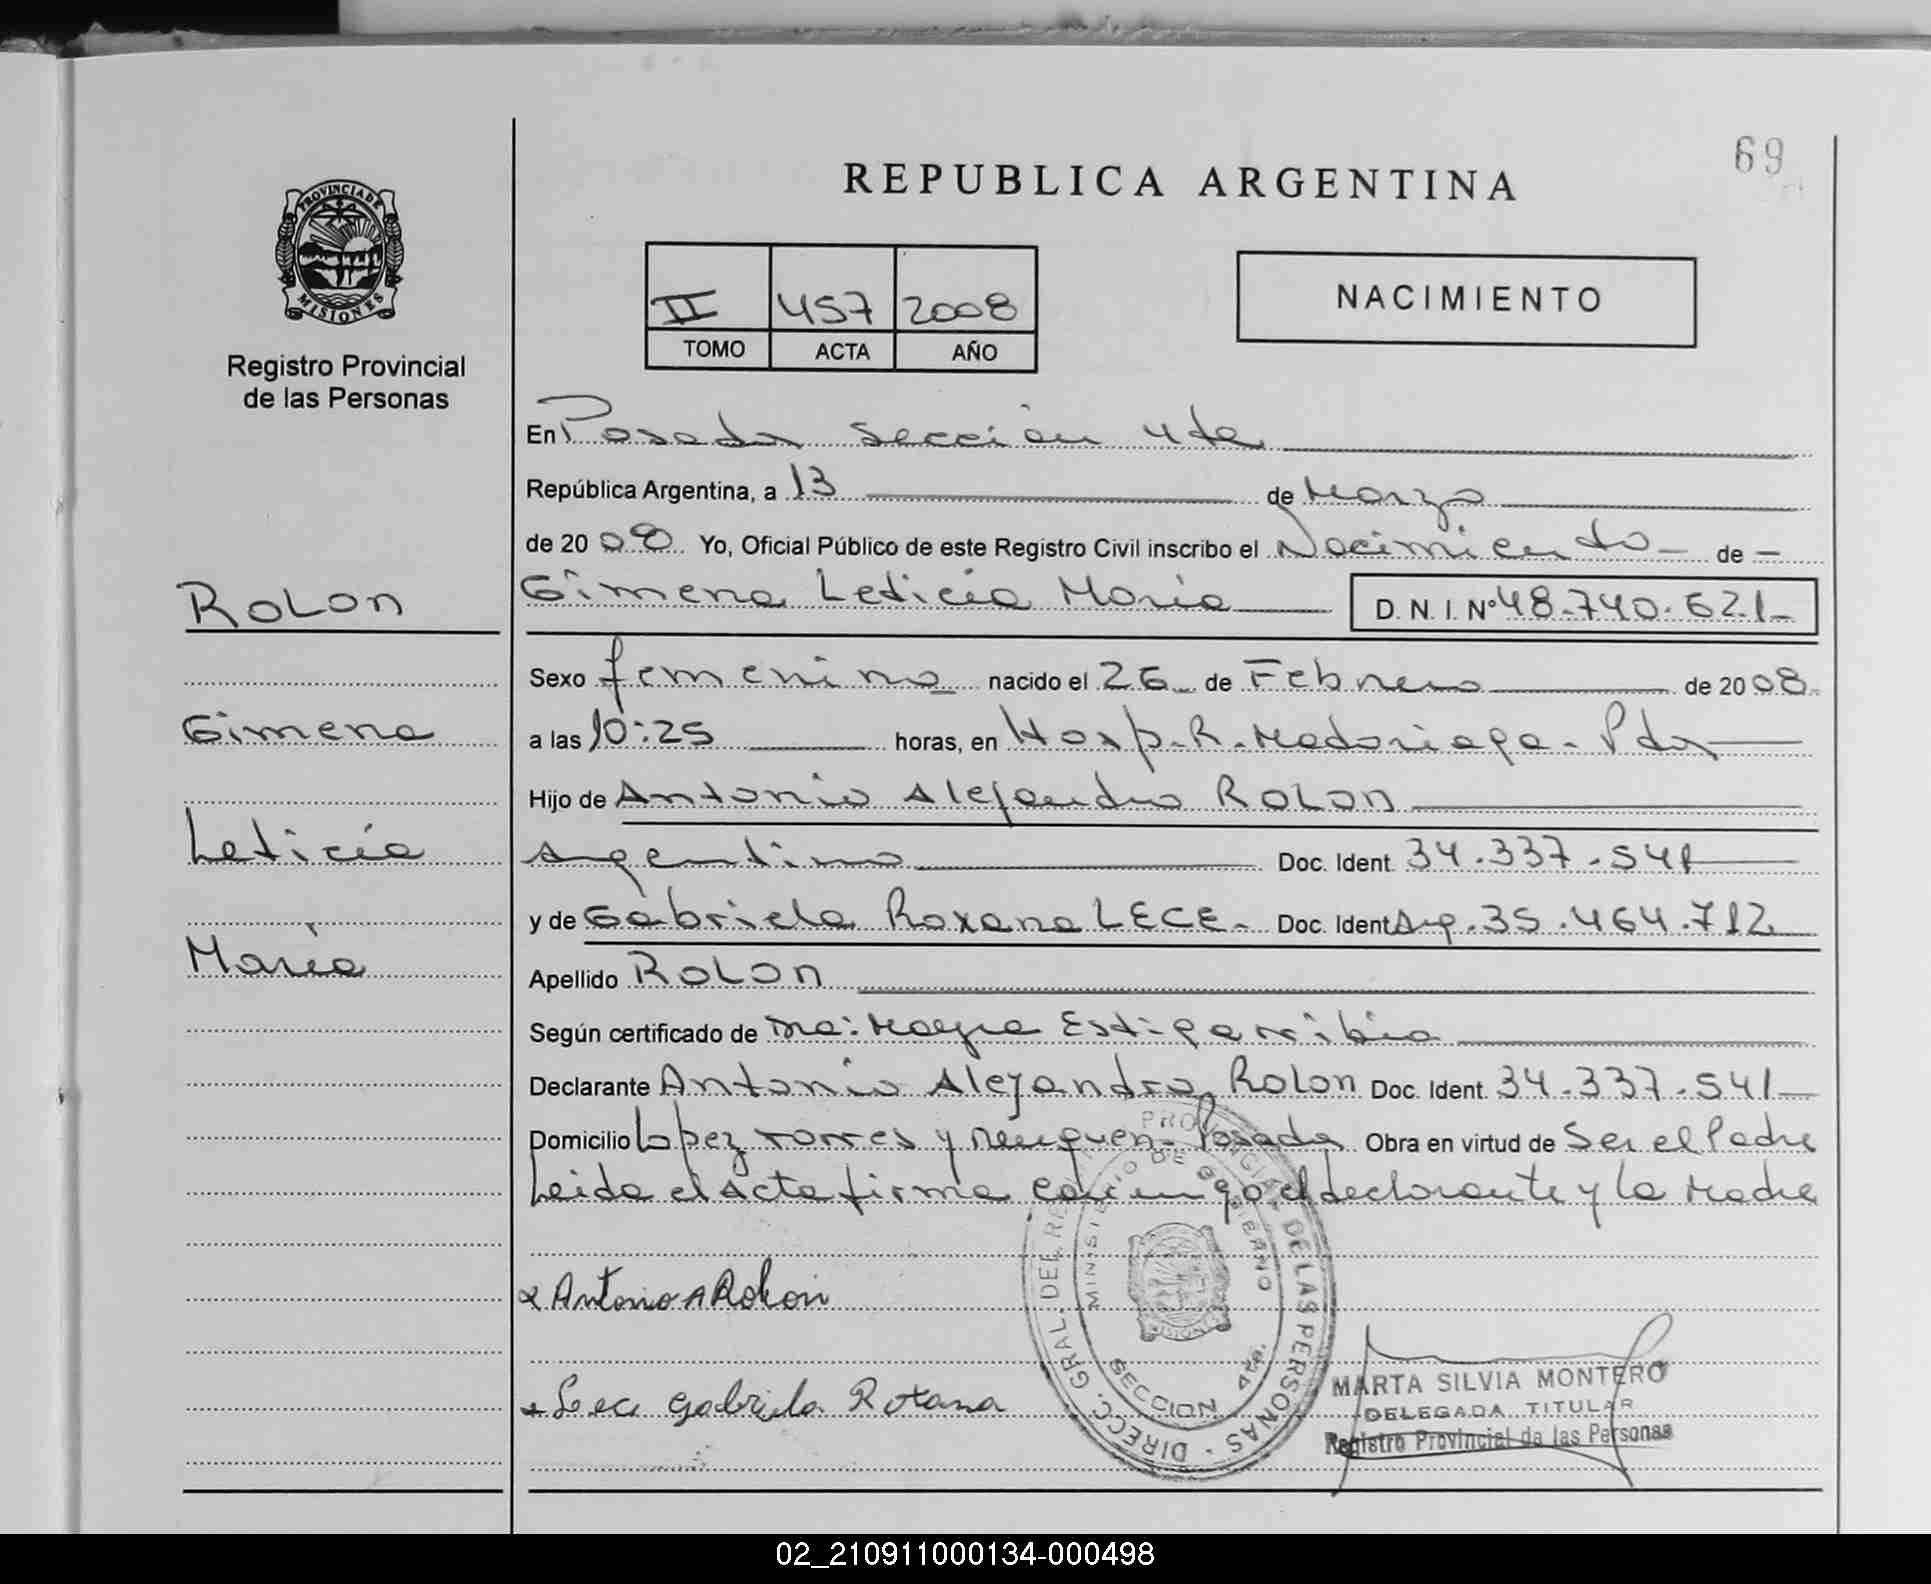 69
REPUBLICA ARGENTINA
PROVINCIA DE
MISIONES
Registro Provincial
de las Personas
II 457 2008
TOMO ACTA AÑO
NACIMIENTO
En Posadas Sección 4ta
República Argentina, a 13 de Marzo
de 2008 Yo, Oficial Público de este Registro Civil inscribo el Nacimiento de
ROLON
Gimena Leticia María D. N. I. Nº 48.740.621
Sexo femenino nacido el 26 de Febrero de 2008
Gimena
a las 10:25 horas, en Hosp. R. Madariaga - Pdas
Hijo de Antonio Alejandro ROLON
Leticia
Argentino Doc. Ident. 34.337.541
y de Gabriela Roxana LECE - Doc. Ident Arg. 35.464.712
María
Apellido ROLON
Según certificado de Mayra
Declarante Antonio Alejandro Rolon Doc. Ident. 34.337.541
Domicilio Lopez Torres y Neuquen - Posadas Obra en virtud de Ser el Padre
Leida el Acta firma conmigo el declarante y la Madre
Antonio A Rolon
Lece Gabriela Roxana
DIRECC. GRAL. DEL RE DE LAS PERSONAS
MINISTERIO DE GOBIERNO
SECCION 4ta.
MISIONES
MARTA SILVIA MONTERO
DELEGADA TITULAR
Registro Provincial de las Personas
02_210911000134-000498